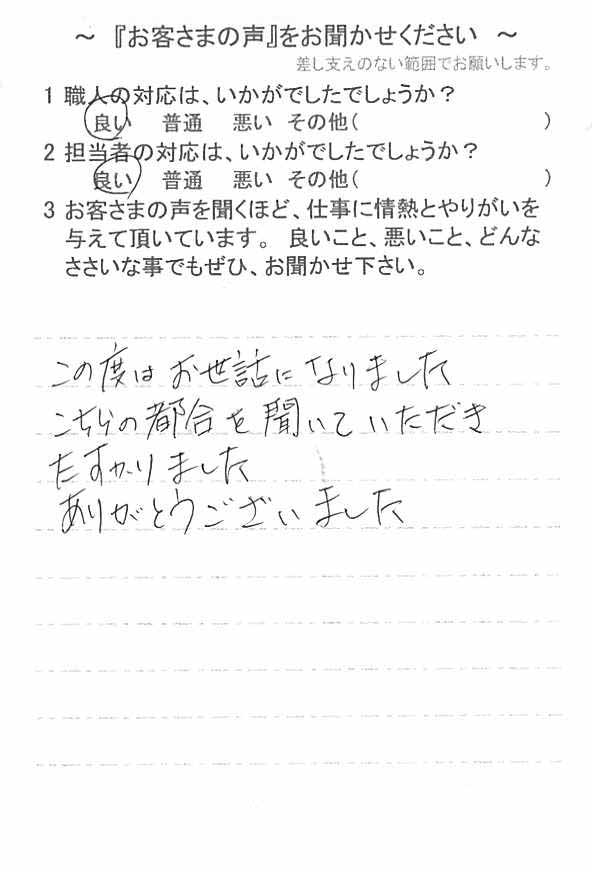 ～ 『お客さまの声』をお聞かせください ～
差し支えのない範囲でお願いします。
1 職人の対応は、いかがでしたでしょうか？
良い 普通 悪い その他( )
2 担当者の対応は、いかがでしたでしょうか？
良い 普通 悪い その他( )
3 お客さまの声を聞くほど、仕事に情熱とやりがいを
与えて頂いています。 良いこと、悪いこと、どんな
ささいな事でもぜひ、お聞かせ下さい。
この度はお世話になりました
こちらの都合を聞いていただき
たすかりました
ありがとうございました